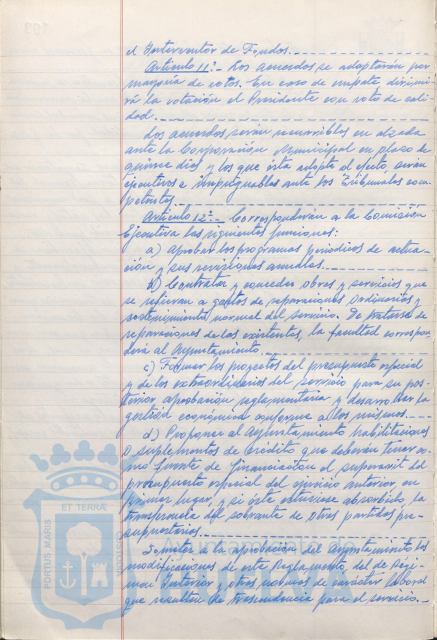 el Interventor de Fondos.
Artículo 11º.- Los acuerdos se adoptarán por
mayoría de votos. En caso de empate dirimi-
rá la votación el Presidente con voto de cali-
dad.
Los acuerdos serán recurribles en alzada
ante la Corporación Municipal en plazo de
quince días y los que ésta adopte al efecto, serán
ejecutivos e impugnables ante los Tribunales com-
petentes.
Artículo 12º.- Corresponderán a la Comisión
Ejecutiva las siguientes funciones:
a) Aprobar los programas periódicos de actua-
ción y sus revisiones anuales.
b) Contratar y conceder obras y servicios que
se refieran a gastos de reparaciones ordinarias y
sostenimiento normal del servicio. De tratarse de
reparaciones de las existentes, la facultad correspon-
derá al Ayuntamiento.
c) Formar los proyectos del presupuesto especial
y de los extraordinarios del servicio para su pos-
terior aprobación reglamentaria y desarrollar la
gestión económica conforme a los mismos.
d) Proponer al Ayuntamiento habilitaciones
o suplementos de Crédito que deberán tener co-
mo fuente de financiación el superavit del
presupuesto especial del ejercicio anterior en
primer lugar, y si éste estuviese absorbido, la
transferencia del sobrante de otras partidas pre-
supuestarias.
Someter a la aprobación del Ayuntamiento las
modificaciones de este Reglamento, del de Régi-
men Interior y otras normas de carácter laboral
que resulten de trascendencia para el servicio.-
ET TERRA
PORTUS MARIS